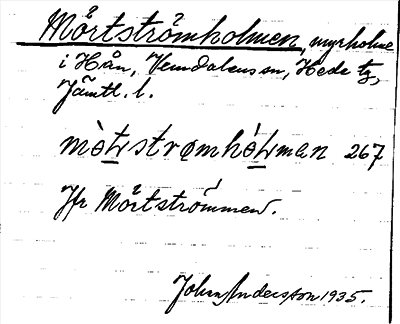 Mörtströmholmen, myrholme
i Hån, Vemdalens sn, Hede tg,
Jämtl. l.
mè̱tstrømhè̱tmen 267
Jfr Mörtströmmen.
John Andersson 1935.